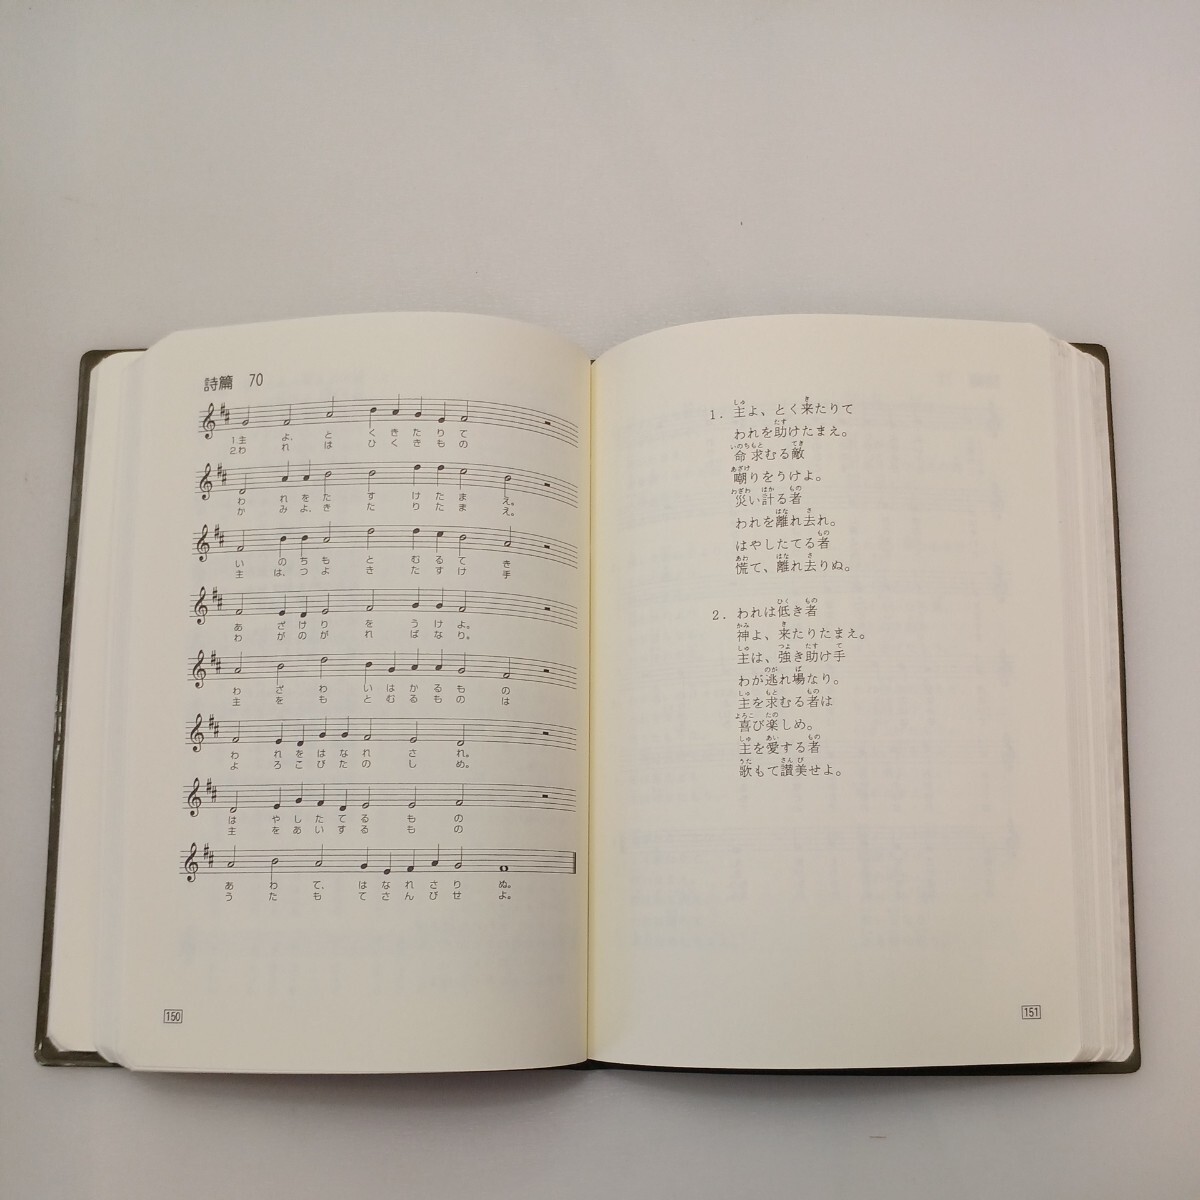 詩篇 70
1主よ、とくきたりて
2われはひくきもの
われをたすけたまえ。
かみよ、きたりたまえ。
いのちもとむるてき
主は、つよときたすけ手
あざけりをうけよ。
わがのがればなり。
わざわいはかるもの
主をもとむるものは
われをはなれされ。
よろこびたのしめ。
はやしたてるもの
主をあいするもの
あわて、はなれさりぬ。
うたもてさんびせよ。
150
1. 主よ、とく来たりて
われを助けたまえ。
命求むる敵
嘲りをうけよ。
災い計る者
われを離れ去れ。
はやしたてる者
慌て、離れ去りぬ。
2. われは低き者
神よ、来たりたまえ。
主は、強き助け手
わが逃れ場なり。
主を求むる者は
喜び楽しめ。
主を愛する者
歌もて讃美せよ。
151